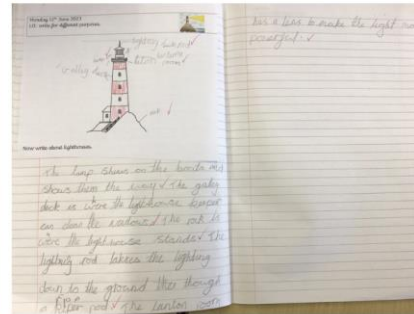 Monday 12th June 2023
LO: write for different purposes.
lighting
rod
gallery deck
room
rock
Now write about lighthouses.
The lamp shows on the boats and
shows them the way. The galey
deck is were the lighthouse keeper
can clean the windows. The rok is
were the light house stands. The
lighting rod takes the lighting
down to the ground ther though
a
rod. The lanton room
has a lens to make the light mor
powerful.